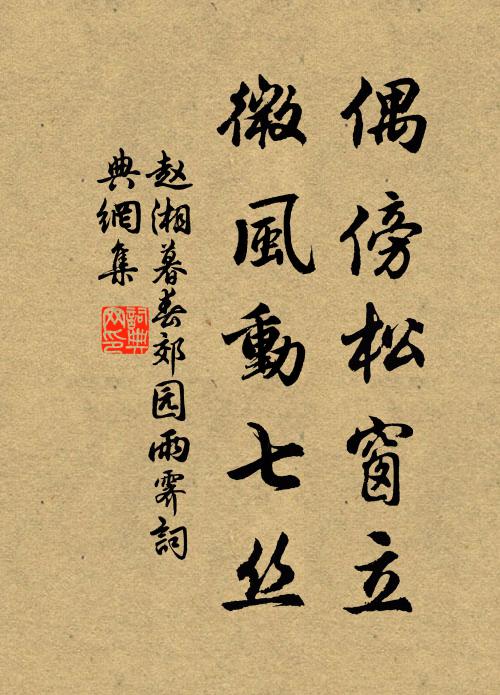 偶傍松窗立
微風動七丝
赵湘暮春郊园雨霁詞
典網集
詞典网印